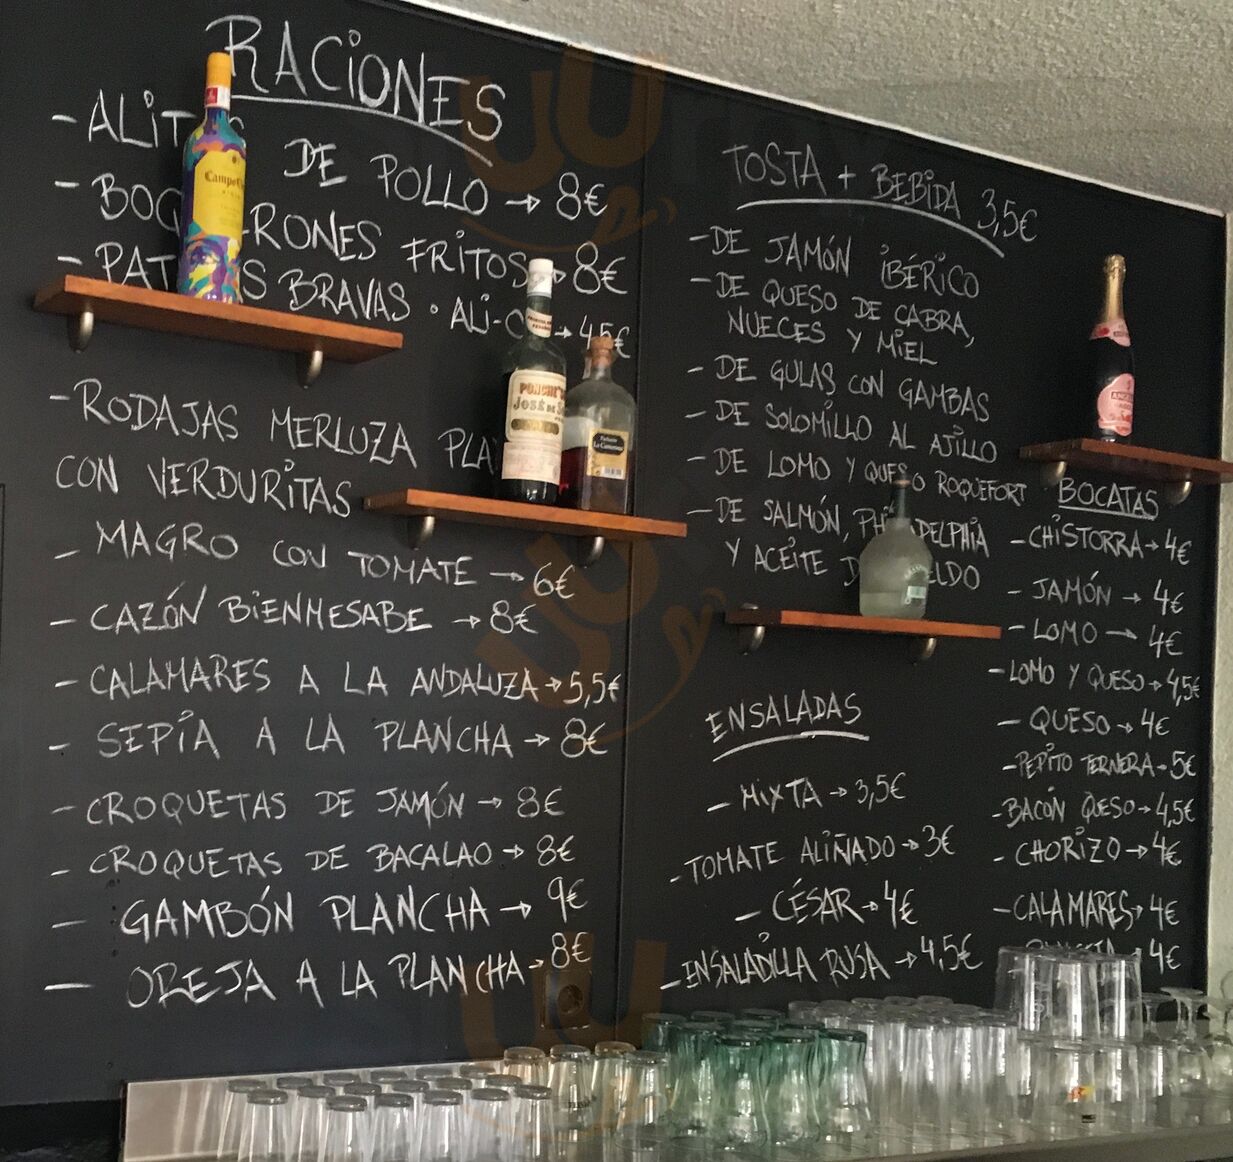 RACIONES
- ALIT DE POLLO → 8€
- BOQ ERONES FRITOS → 8€
- PAT S BRAVAS · ALI-O → 4,5€
- RODAJAS MERLUZA PLA
CON VERDURITAS
- MAGRO CON TOMATE → 6€
- CAZÓN BIENMESABE → 8€
- CALAMARES A LA ANDALUZA → 5,5€
- SEPIA A LA PLANCHA → 8€
- CROQUETAS DE JAMÓN → 8€
- CROQUETAS DE BACALAO → 8€
- GAMBÓN PLANCHA → 9€
- OREJA A LA PLANCHA - 8€
TOSTA + BEBIDA 3,5€
- DE JAMÓN IBÉRICO
- DE QUESO DE CABRA,
NUECES Y MIEL
- DE GULAS CON GAMBAS
- DE SOLOMILLO AL AJILLO
- DE LOMO Y QUESO ROQUEFORT
- DE SALMÓN, PHILADELPHIA
Y ACEITE D ELDO
ENSALADAS
- MIXTA → 3,5€
- TOMATE ALIÑADO → 3€
- CÉSAR → 4€
- ENSALADILLA RUSA → 4,5€
BOCATAS
- CHISTORRA → 4€
- JAMÓN → 4€
- LOMO → 4€
- LOMO Y QUESO → 4,5€
- QUESO → 4€
- PEPITO TERNERA - 5€
- BACÓN QUESO → 4,5€
- CHORIZO → 4€
- CALAMARES → 4€
→ 4€
PONCHE
JOSÉ DE